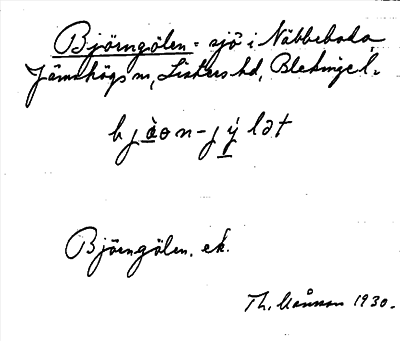 Björngölen = sjö i Näbbeboda,
Jämshögs sn, Listers hd, Blekinge l.
Björngölen. ek.
Th. Månsson 1930.